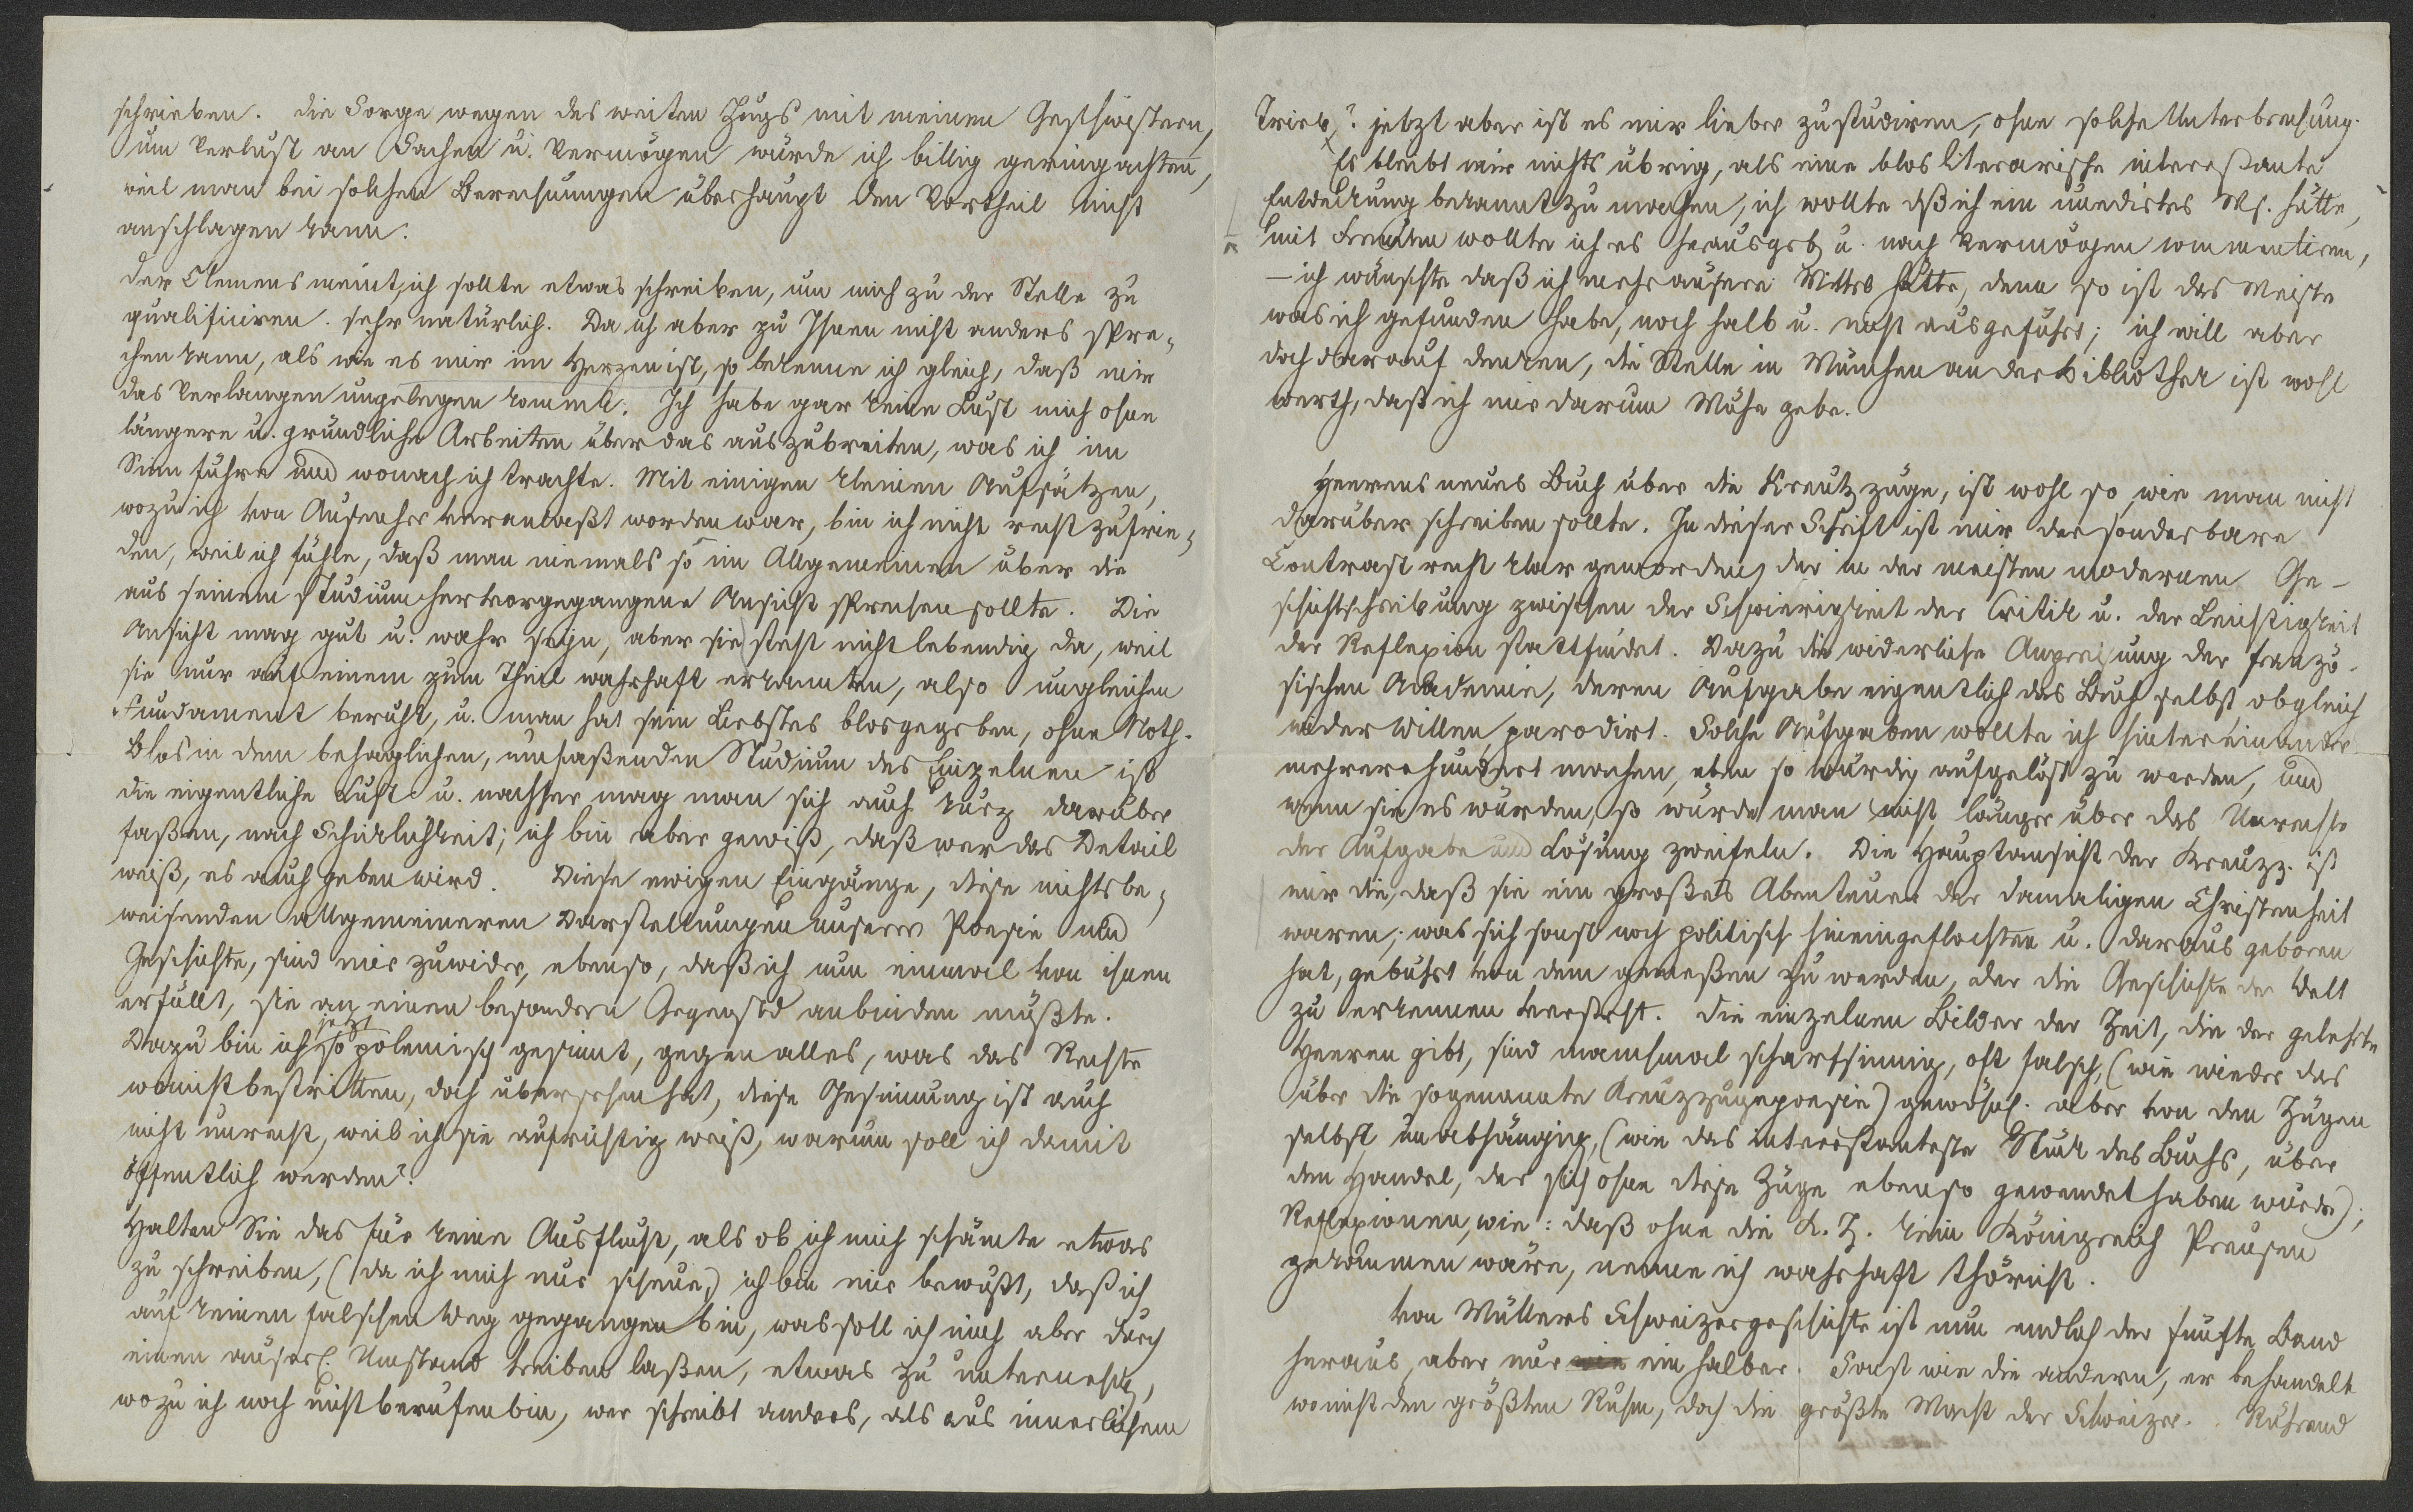 schrieben. die Sorge wegen des weiten Zugs mit meinen Geschwistern,
um Verlust an Sachen u. Vermögen würde ich billig geringachten,
weil man bei solchen Berechnungen überhaupt den Vortheil nicht
anschlagen kann.
der Clemens meint, ich sollte etwas schreiben, um mich zu der Stelle zu
qualificiren. sehr natürlich. Da ich aber zu Ihnen nicht anders spre-
chen kann, als wie es mir im Herzen ist, so bekenne ich gleich, daß mir
das Verlangen ungelegen kommt. Ich habe gar keine Lust mich ohne
längere u. gründliche Arbeiten über das auszubreiten, was ich im
Sinn führe und wonach ich trachte. Mit einigen kleinen Aufsätzen,
wozu ich von Aufseher veranlaßt worden war, bin ich nicht recht zufrie-
den, weil ich fühle, daß man niemals so im Allgemeinen über die
aus seinem Studium hervorgegangene Ansicht sprechen sollte. Die
Ansicht mag gut u. wahr seyn, aber sie steht nicht lebendig da, weil
sie nur auf einem zum Theil wahrhaft erkannten, also ungleichen
Fundament beruht, u. man hat sein Liebstes blosgegeben, ohne Noth.
Blos in dem behaglichen, umfaßenden Studium des Einzelnen ist
die eigentliche Lust u. nachher mag man sich auch kurz darüber
faßen, nach Schicklichkeit; ich bin aber gewiß, daß wer das Detail
weiß, es auch geben wird. Diese ewigen Eingänge, diese nichtsbe-
weisenden allgemeineren Darstellungen unserer Poesie und
Geschichte, sind mir zuwider, ebenso, daß ich nun einmal von ihnen
erfüllt, sie an einen besondern Gegenstd anbinden müßte.
Dazu bin ich jetzt so polemisch gesinnt, gegen alles, was das Rechte
wo nicht bestritten, doch übersehen hat, diese Gesinnung ist auch
nicht unrecht, weil ich sie aufrichtig weiß, warum soll ich damit
öffentlich werden?
Halten Sie das für keine Ausflucht, als ob ich mich schämte etwas
zu schreiben, (da ich mich nur scheue,) ich bin mir bewußt, daß ich
auf keinen falschen Weg gegangen bin, was soll ich mich aber durch
einen äuserl. Umstand treiben laßen, etwas zu unternehm,
wozu ich noch nicht berufen bin, wer schreibt anders, als aus innerlichem
Trieb? jetzt aber ist es mir lieber zu studiren, ohne solche Unterbrechung.
Es bleibt mir nichts übrig, als eine blos literarische interessante
Entdeckung bekannt zu machen, ich wollte dß ich ein unedirtes Ms. hätte,
mit Freuden wollte ich es herausgeb u. nach Vermögen commentiren,
– ich wünschte daß ich mehr äusere Mittel hätte, denn so ist das Meiste
was ich gefunden habe, noch halb u. nicht ausgeführt; ich will aber
doch darauf denken, die Stelle in München an der Bibliothek ist wohl
werth, daß ich mir darum Mühe gebe.
Heerens neues Buch über die Kreutzzüge, ist wohl so, wie man nicht
darüber schreiben sollte. In dieser Schrift ist mir der sonderbare
Contrast recht klar geworden, der in der meisten modernen Ge-
schichtschreibung zwischen der Schwierigkeit der Critik u. der Leichtigkeit
der Reflexion stattfindet. Dazu die widerliche Anpreisung der franzö-
sischen Academie, deren Aufgabe eigentlich das Buch selbst, obgleich
wider Willen, parodirt. Solche Aufgaben wollte ich hintereinander
mehrere hundert machen, eben so würdig aufgelöst zu werden, und
wenn sie es würden, so würde man nicht länger über das Unrechte
der Aufgabe und Lösung zweifeln. Die Hauptansicht der Kreuzz. ist
mir die, daß sie ein großes Abenteuer der damaligen Christenheit
waren; was sich sonst noch politisch hineingeflochten u. daraus geboren
hat, gebührt von dem gemeßen zu werden, der die Geschichte der Welt
zu erkennen versteht. Die einzelnen Bilder der Zeit, die der gelehrte
Heeren gibt, sind manchmal scharfsinnig, oft falsch, (wie wieder das
über die sogenannte Kreuzzugspoesie) gewöhnl. aber von den Zügen
selbst unabhängig, (wie das interessanteste Stück des Buchs, über
den Handel, der sich ohne diese Züge ebenso gewendet haben würde);
Reflexionen, wie: daß ohne die K. Z. kein Königreich Preusen
gekommen wäre, nenne ich wahrhaft thöricht.
Von Müllers Schweizergeschichte ist nun endlich der fünfte Band
heraus, aber nur ein halber. Sonst wie die andern, er behandelt
wo nicht den größten Ruhm, doch die größte Macht der Schweizer. Rührend